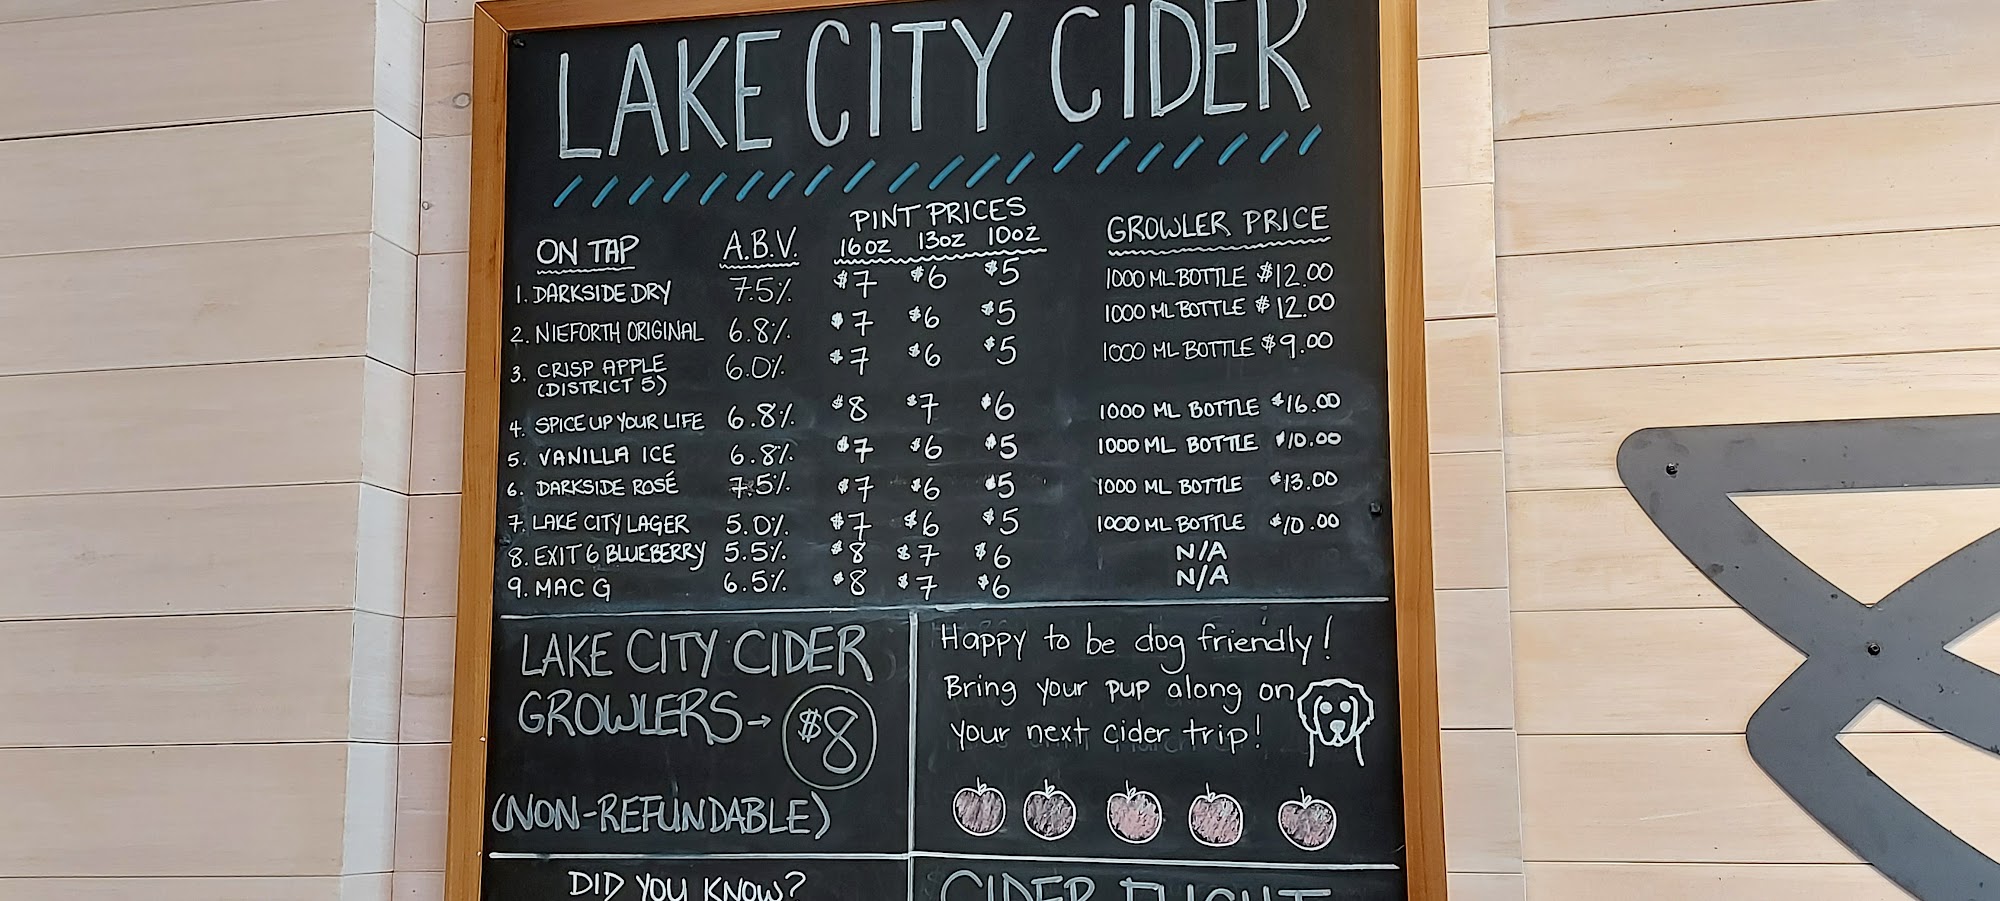 LAKE CITY CIDER
PINT PRICES
ON TAP A.B.V. 16oz 13oz 10oz GROWLER PRICE
1. DARKSIDE DRY 7.5% $7 $6 $5 1000 ML BOTTLE $12.00
2. NIEFORTH ORIGINAL 6.8% $7 $6 $5 1000 ML BOTTLE $12.00
3. CRISP APPLE 6.0% $7 $6 $5 1000 ML BOTTLE $9.00
(DISTRICT 5)
4. SPICE UP YOUR LIFE 6.8% $8 $7 $6 1000 ML BOTTLE $16.00
5. VANILLA ICE 6.8% $7 $6 $5 1000 ML BOTTLE $10.00
6. DARKSIDE ROSÉ 7.5% $7 $6 $5 1000 ML BOTTLE $13.00
7. LAKE CITY LAGER 5.0% $7 $6 $5 1000 ML BOTTLE $10.00
8. EXIT 6 BLUEBERRY 5.5% $8 $7 $6 N/A
9. MAC G 6.5% $8 $7 $6 N/A
LAKE CITY CIDER
GROWLERS→ $8
(NON-REFUNDABLE)
Happy to be dog friendly!
Bring your pup along on
your next cider trip!
DID YOU KNOW?
CIDER FLIGHT